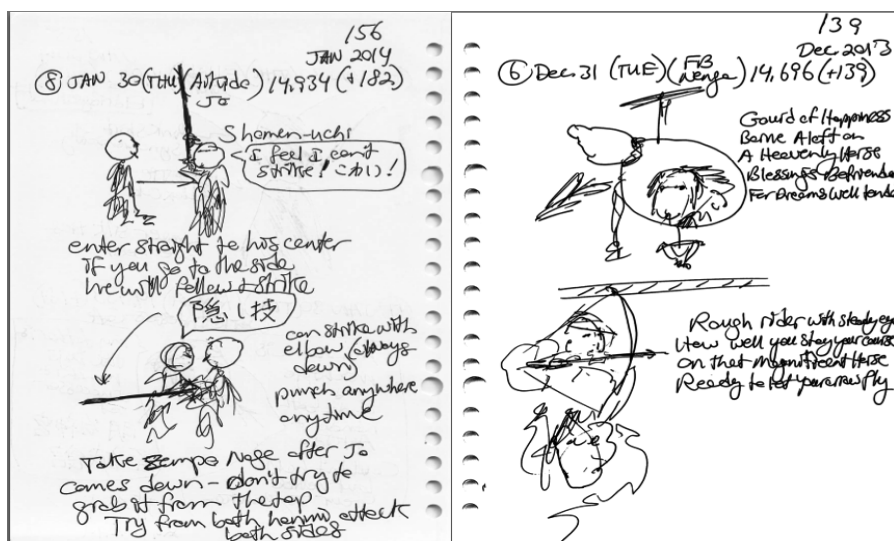 156
JAN 2014
⑧ JAN 30 (THU) (Aihyde Jo) 14,934 (+182)
Shomen-uchi
I feel I can't
strike! こわい!
enter straight to his center
if you go to the side
he will follow & strike
隠し技
can strike with
elbow (always
down)
punch anywhere
any time
Take Zempo Nage after Jo
comes down - don't try to
grab it from the top
Try from both hanmi attack
both sides
139
Dec. 2013
⑥ Dec. 31 (TUE) (FB Nenga) 14,696 (+139)
Gourd of Happiness
Borne Aloft on
A Heavenly Horse
Blessings Befriended
For Dreams Well tended
Rough rider with steady eye
How well you stay your course
on that magnificent Horse
Ready to let your arrows fly